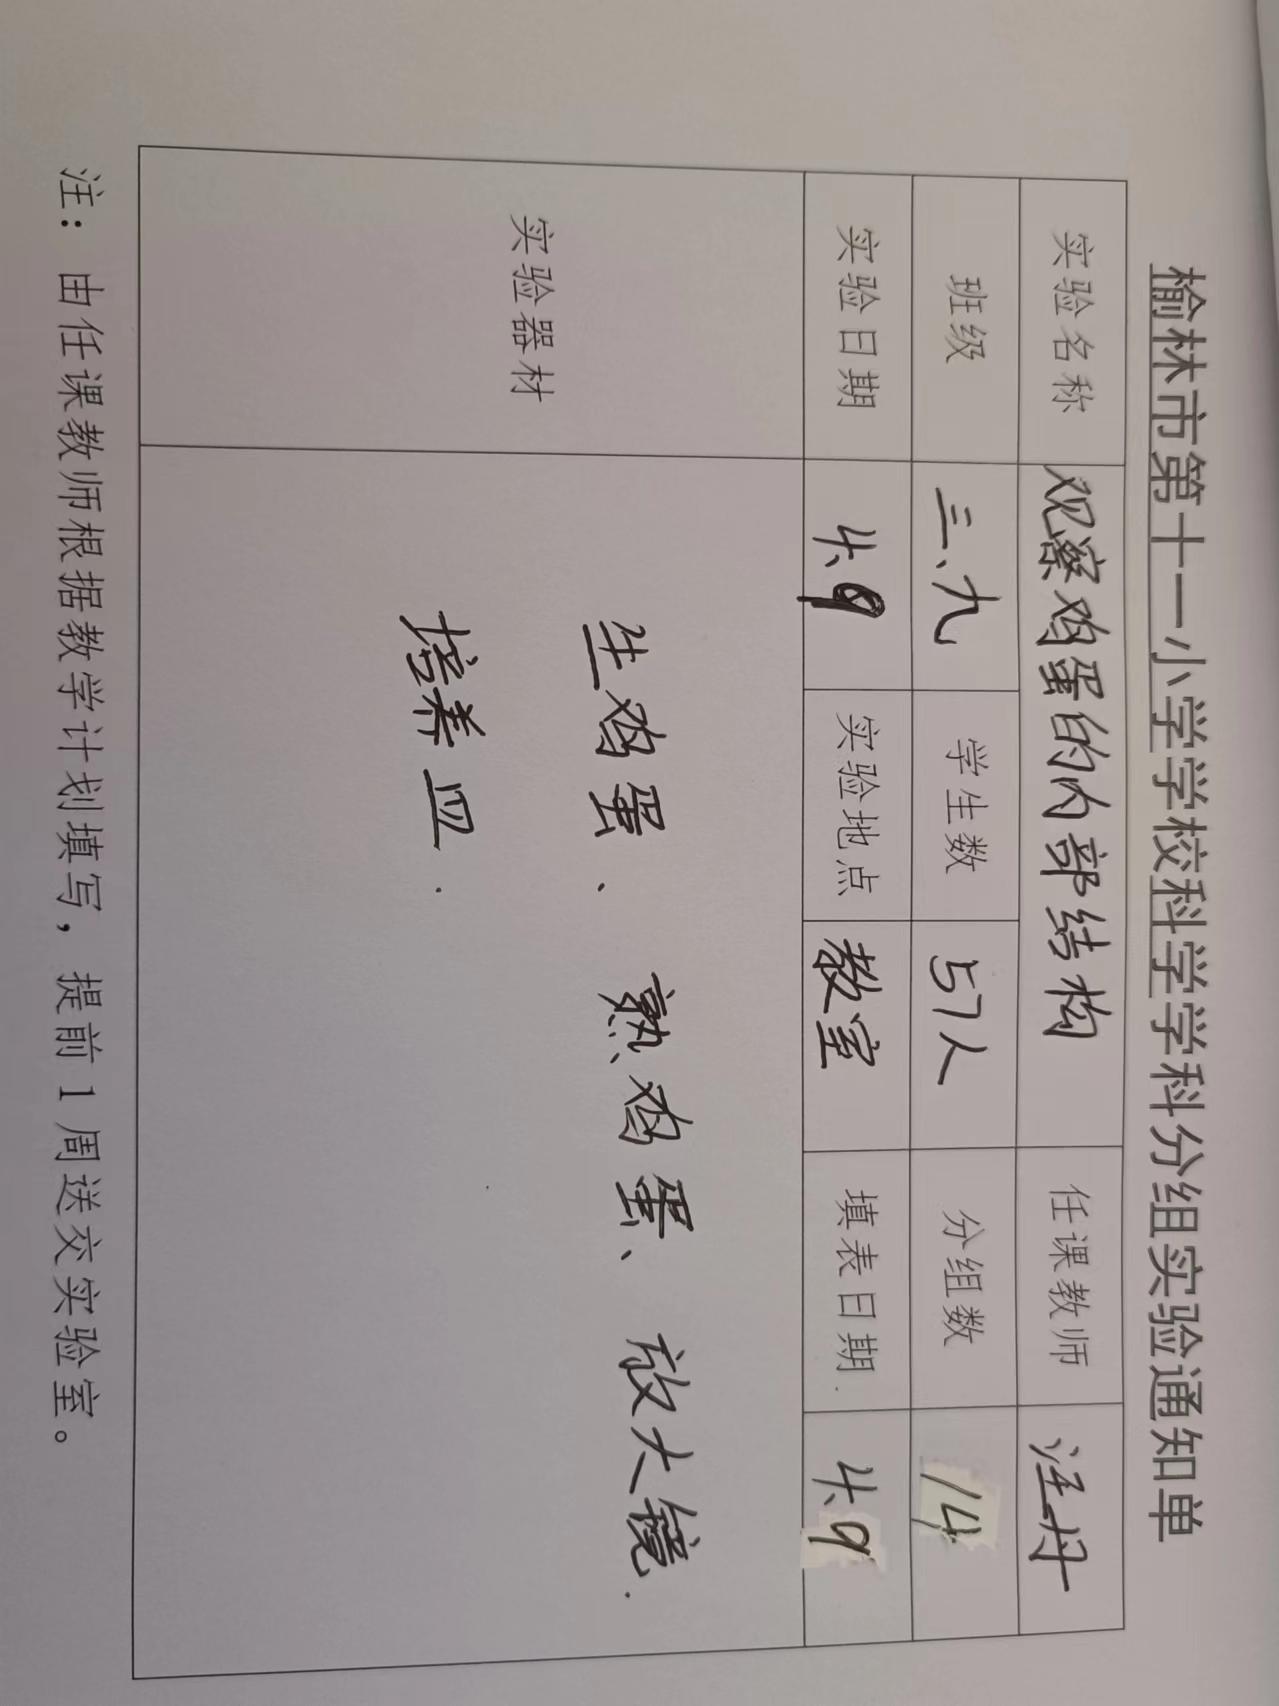 榆林市第十一小学学校科学学科分组实验通知单
实验名称 观察鸡蛋的内部结构 任课教师 汪丹
班级 三、九 学生数 57人 分组数 14
实验日期 4.9 实验地点 教室 填表日期 4.9
实验器材 生鸡蛋、熟鸡蛋、放大镜.
培养皿.
注：由任课教师根据教学计划填写，提前1周送交实验室。